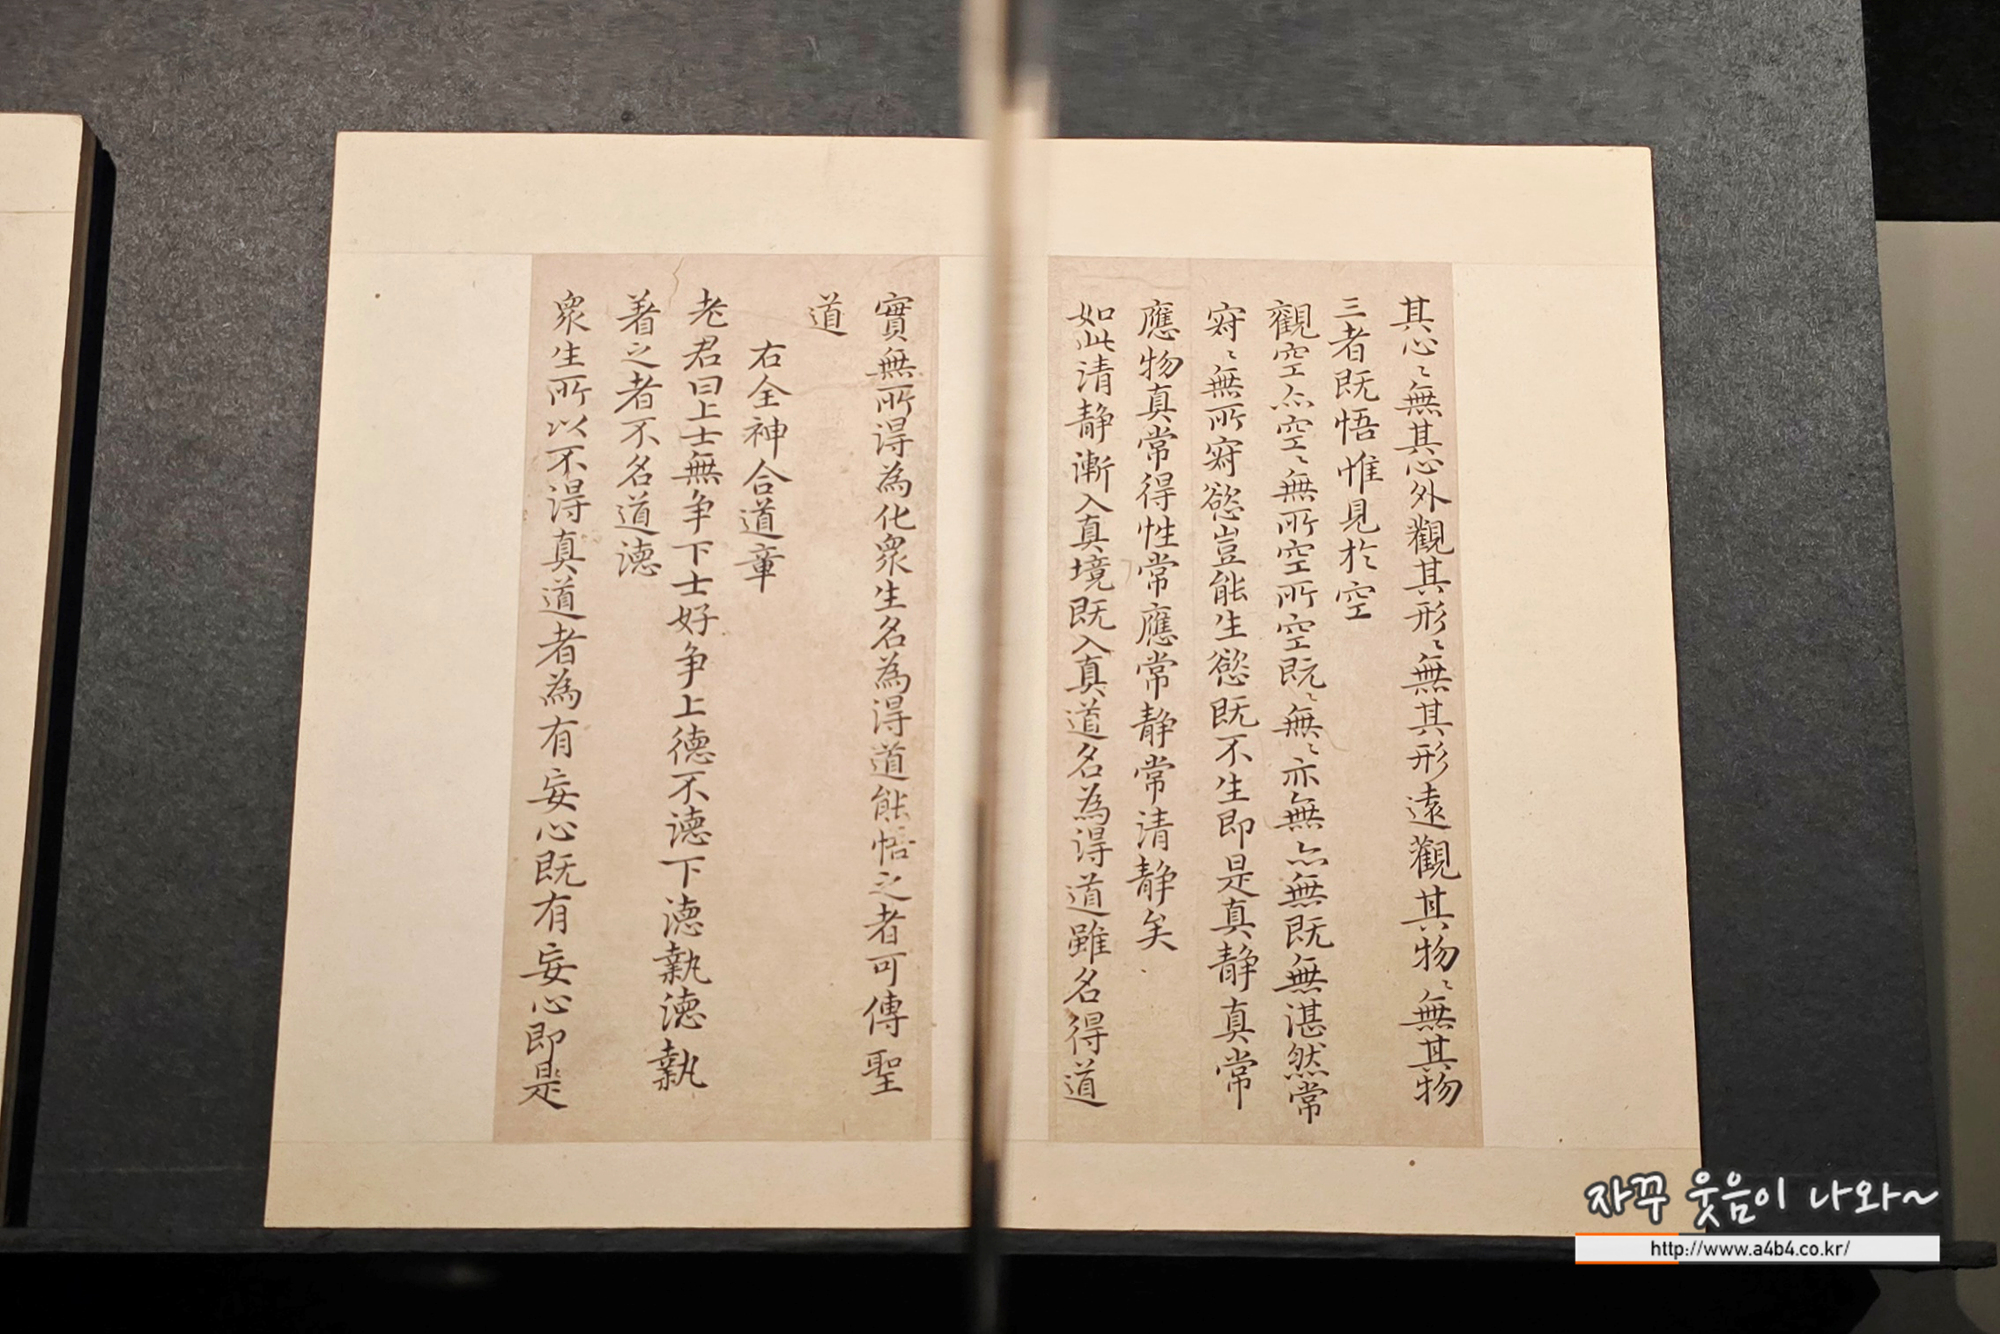 其心〻無其心外觀其形〻無其形遠觀其物〻無其物
三者既悟惟見於空
觀空亦空〻無所空所空既〻無〻亦無亦無既無湛然常
寂〻無所寂慾豈能生慾既不生即是真靜真常
應物真常得性常應常靜常清靜矣
如此清靜漸入真境既入真道名為得道雖名得道
實無所得為化衆生名為得道能悟之者可傳聖
道
右全神合道章
老君曰上士無争下士好争上德不德下德執德執
著之者不名道德
衆生所以不得真道者為有妄心既有妄心即是
자꾸 웃음이 나와~
http://www.a4b4.co.kr/